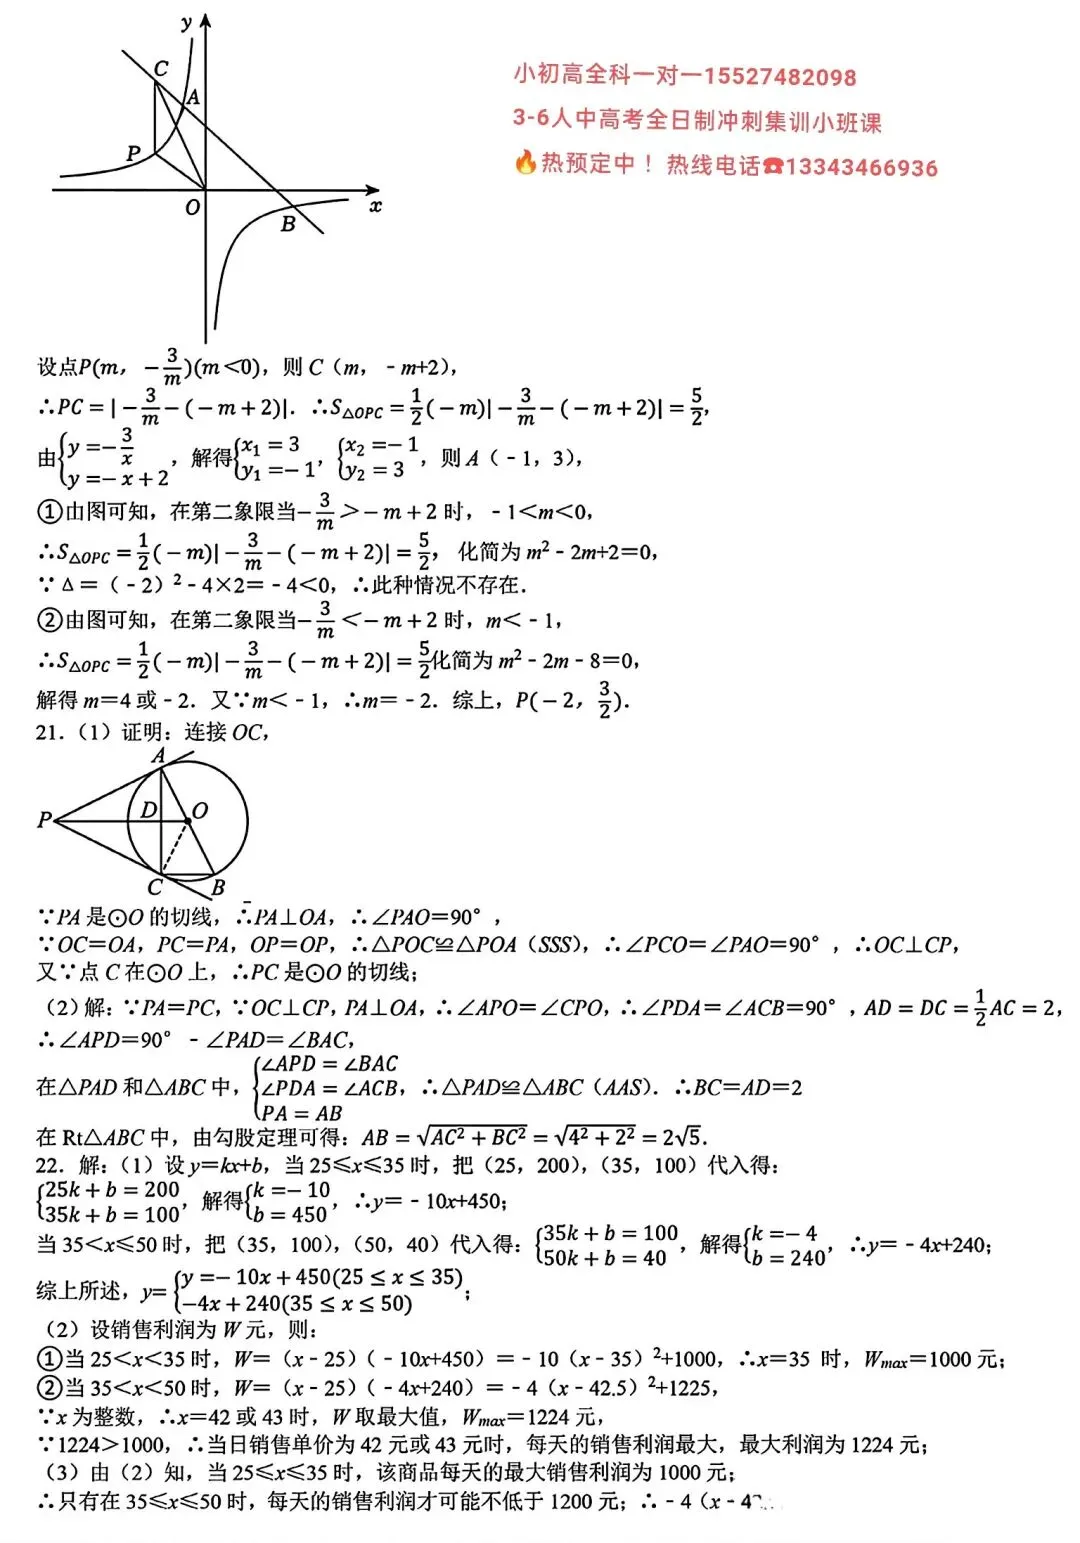 y
C
A
P
O
B
x
小初高全科一对一15527482098
3-6人中高考全日制冲刺集训小班课
🔥热预定中！热线电话☎13343466936
设点P(m，-3/m)(m<0)，则 C（m，-m+2），
∴PC=|-3/m-(-m+2)|．∴S△OPC=1/2(-m)|-3/m-(-m+2)|=5/2，
由{y=-3/x y=-x+2，解得{x₁=3 y₁=-1，{x₂=-1 y₂=3，则 A（-1，3），
①由图可知，在第二象限当-3/m>-m+2 时，-1<m<0，
∴S△OPC=1/2(-m)|-3/m-(-m+2)|=5/2， 化简为 m²-2m+2=0，
∵Δ=（-2）²-4×2=-4<0，∴此种情况不存在．
②由图可知，在第二象限当-3/m<-m+2 时，m<-1，
∴S△OPC=1/2(-m)|-3/m-(-m+2)|=5/2化简为 m²-2m-8=0，
解得 m=4 或-2．又∵m<-1，∴m=-2．综上，P(-2，3/2)．
21．（1）证明：连接 OC，
A
P
D
O
C
B
∵PA 是⊙O 的切线，∴PA⊥OA，∴∠PAO=90°，
∵OC=OA，PC=PA，OP=OP，∴△POC≌△POA（SSS），∴∠PCO=∠PAO=90°，∴OC⊥CP，
又∵点 C 在⊙O 上，∴PC 是⊙O 的切线；
（2）解：∵PA=PC，∵OC⊥CP，PA⊥OA，∴∠APO=∠CPO，∴∠PDA=∠ACB=90°，AD=DC=1/2AC=2，
∴∠APD=90°-∠PAD=∠BAC，
在△PAD 和△ABC 中，{∠APD=∠BAC ∠PDA=∠ACB PA=AB，∴△PAD≌△ABC（AAS）．∴BC=AD=2
在 Rt△ABC 中，由勾股定理可得：AB=√(AC²+BC²)=√(4²+2²)=2√5．
22．解：（1）设 y=kx+b，当 25≤x≤35 时，把（25，200），（35，100）代入得：
{25k+b=200 35k+b=100，解得{k=-10 b=450，∴y=-10x+450；
当 35<x≤50 时，把（35，100），（50，40）代入得：{35k+b=100 50k+b=40，解得{k=-4 b=240，∴y=-4x+240；
综上所述，y={y=-10x+450(25≤x≤35) -4x+240(35≤x≤50)；
（2）设销售利润为 W 元，则：
①当 25<x<35 时，W=（x-25）（-10x+450）=-10（x-35）²+1000，∴x=35 时，Wmax=1000 元；
②当 35<x<50 时，W=（x-25）（-4x+240）=-4（x-42.5）²+1225，
∵x 为整数，∴x=42 或 43 时，W 取最大值，Wmax=1224 元，
∵1224>1000，∴当日销售单价为 42 元或 43 元时，每天的销售利润最大，最大利润为 1224 元；
（3）由（2）知，当 25≤x≤35 时，该商品每天的最大销售利润为 1000 元；
∴只有在 35≤x≤50 时，每天的销售利润才可能不低于 1200 元；∴-4（x-4